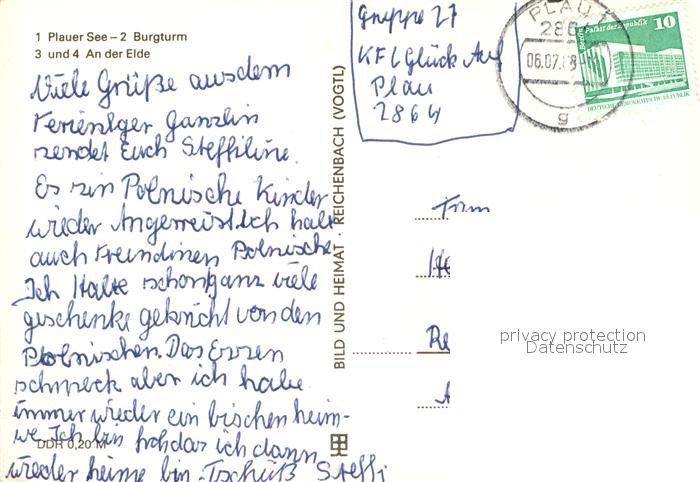 1 Plauer See – 2 Burgturm
3 und 4 An der Elde
Viele Grüße aus dem
Ferienlger Ganzlin
sendet Euch Steffiline.
Es sin Polnische Kinder
wieder Angerreist Ich hale
auch Freindinen Polnische
Ich Halte schon ganz viele
geschenke gekricht von den
Polnischen. Das Essen
schmeck aber ich habe
immer wieder ein bischen heim-
we Ich bin froh das ich dann
wieder heime bin. Tschüß Steffi
DDR 0,20 M
BILD UND HEIMAT · REICHENBACH (VOGTL)
Gruppe 27
KFL Glück Auf
Plau
2864
PLAU 1
286
06.07.88
g
Berlin, Palast der Republik
10
DEUTSCHE DEMOKRATISCHE REPUBLIK
Fam
He
Re
privacy protection
Datenschutz